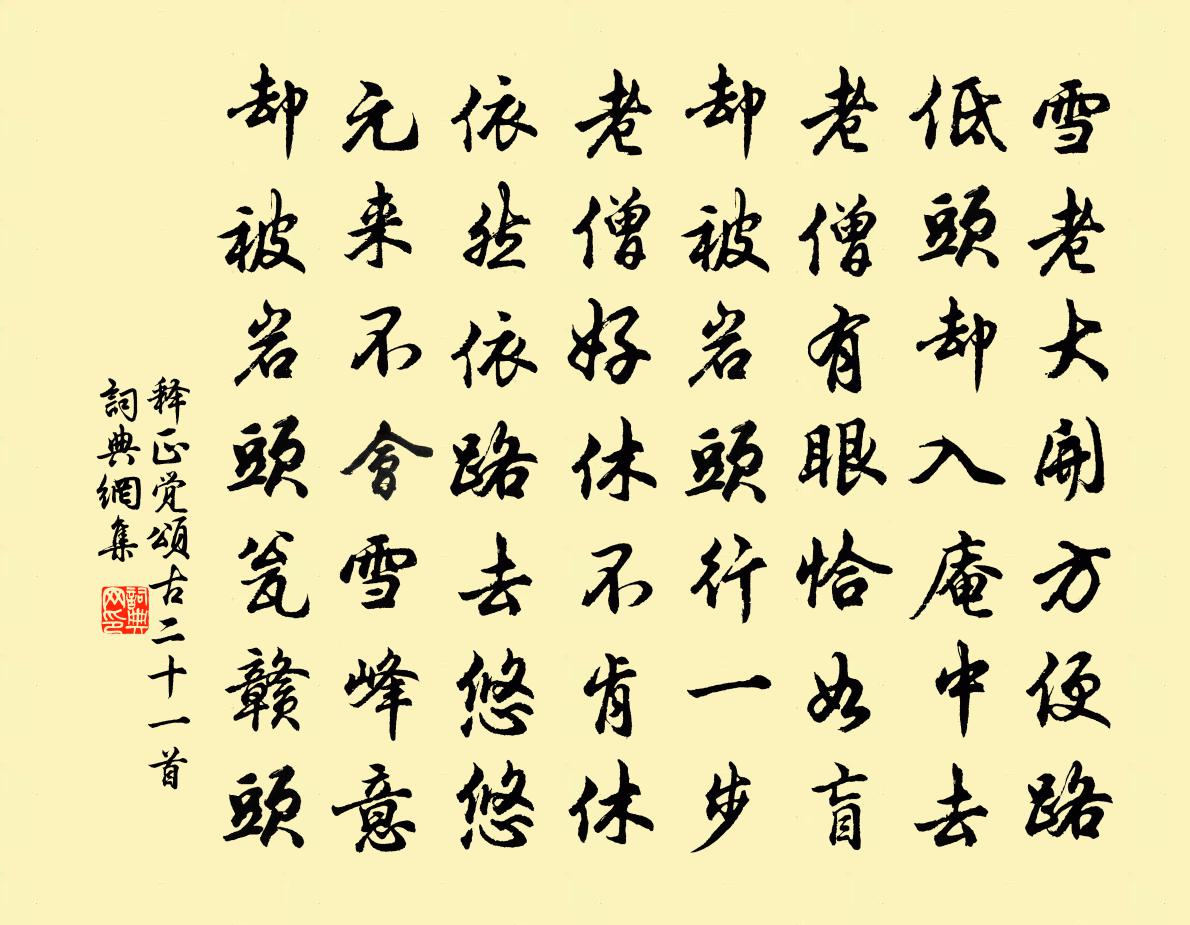 雪老大開方便路
低頭却入庵中去
老僧有眼恰如盲
却被岩頭行一步
老僧好休不肯休
依然依路去悠悠
元来不會雪峰意
却被岩頭瓮贛頭
释正觉頌古二十一首
詞典網集
詞典网印